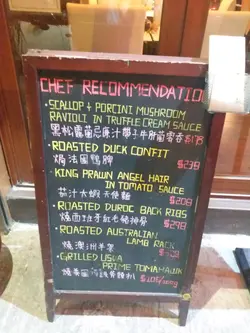 CHEF RECOMMENDATION
SCALLOP & PORCINI MUSHROOM
RAVIOLI IN TRUFFLE CREAM SAUCE
$175
ROASTED DUCK CONFIT
焗法國鴨髀
$238
KING PRAWN ANGEL HAIR
IN TOMATO SAUCE
茄汁大蝦天使麵
$208
ROASTED DUROC BACK RIBS
$298
ROASTED AUSTRALIAN
LAMB RACK
燒澳洲羊架
GRILLED USDA
PRIME TOMAHAWK